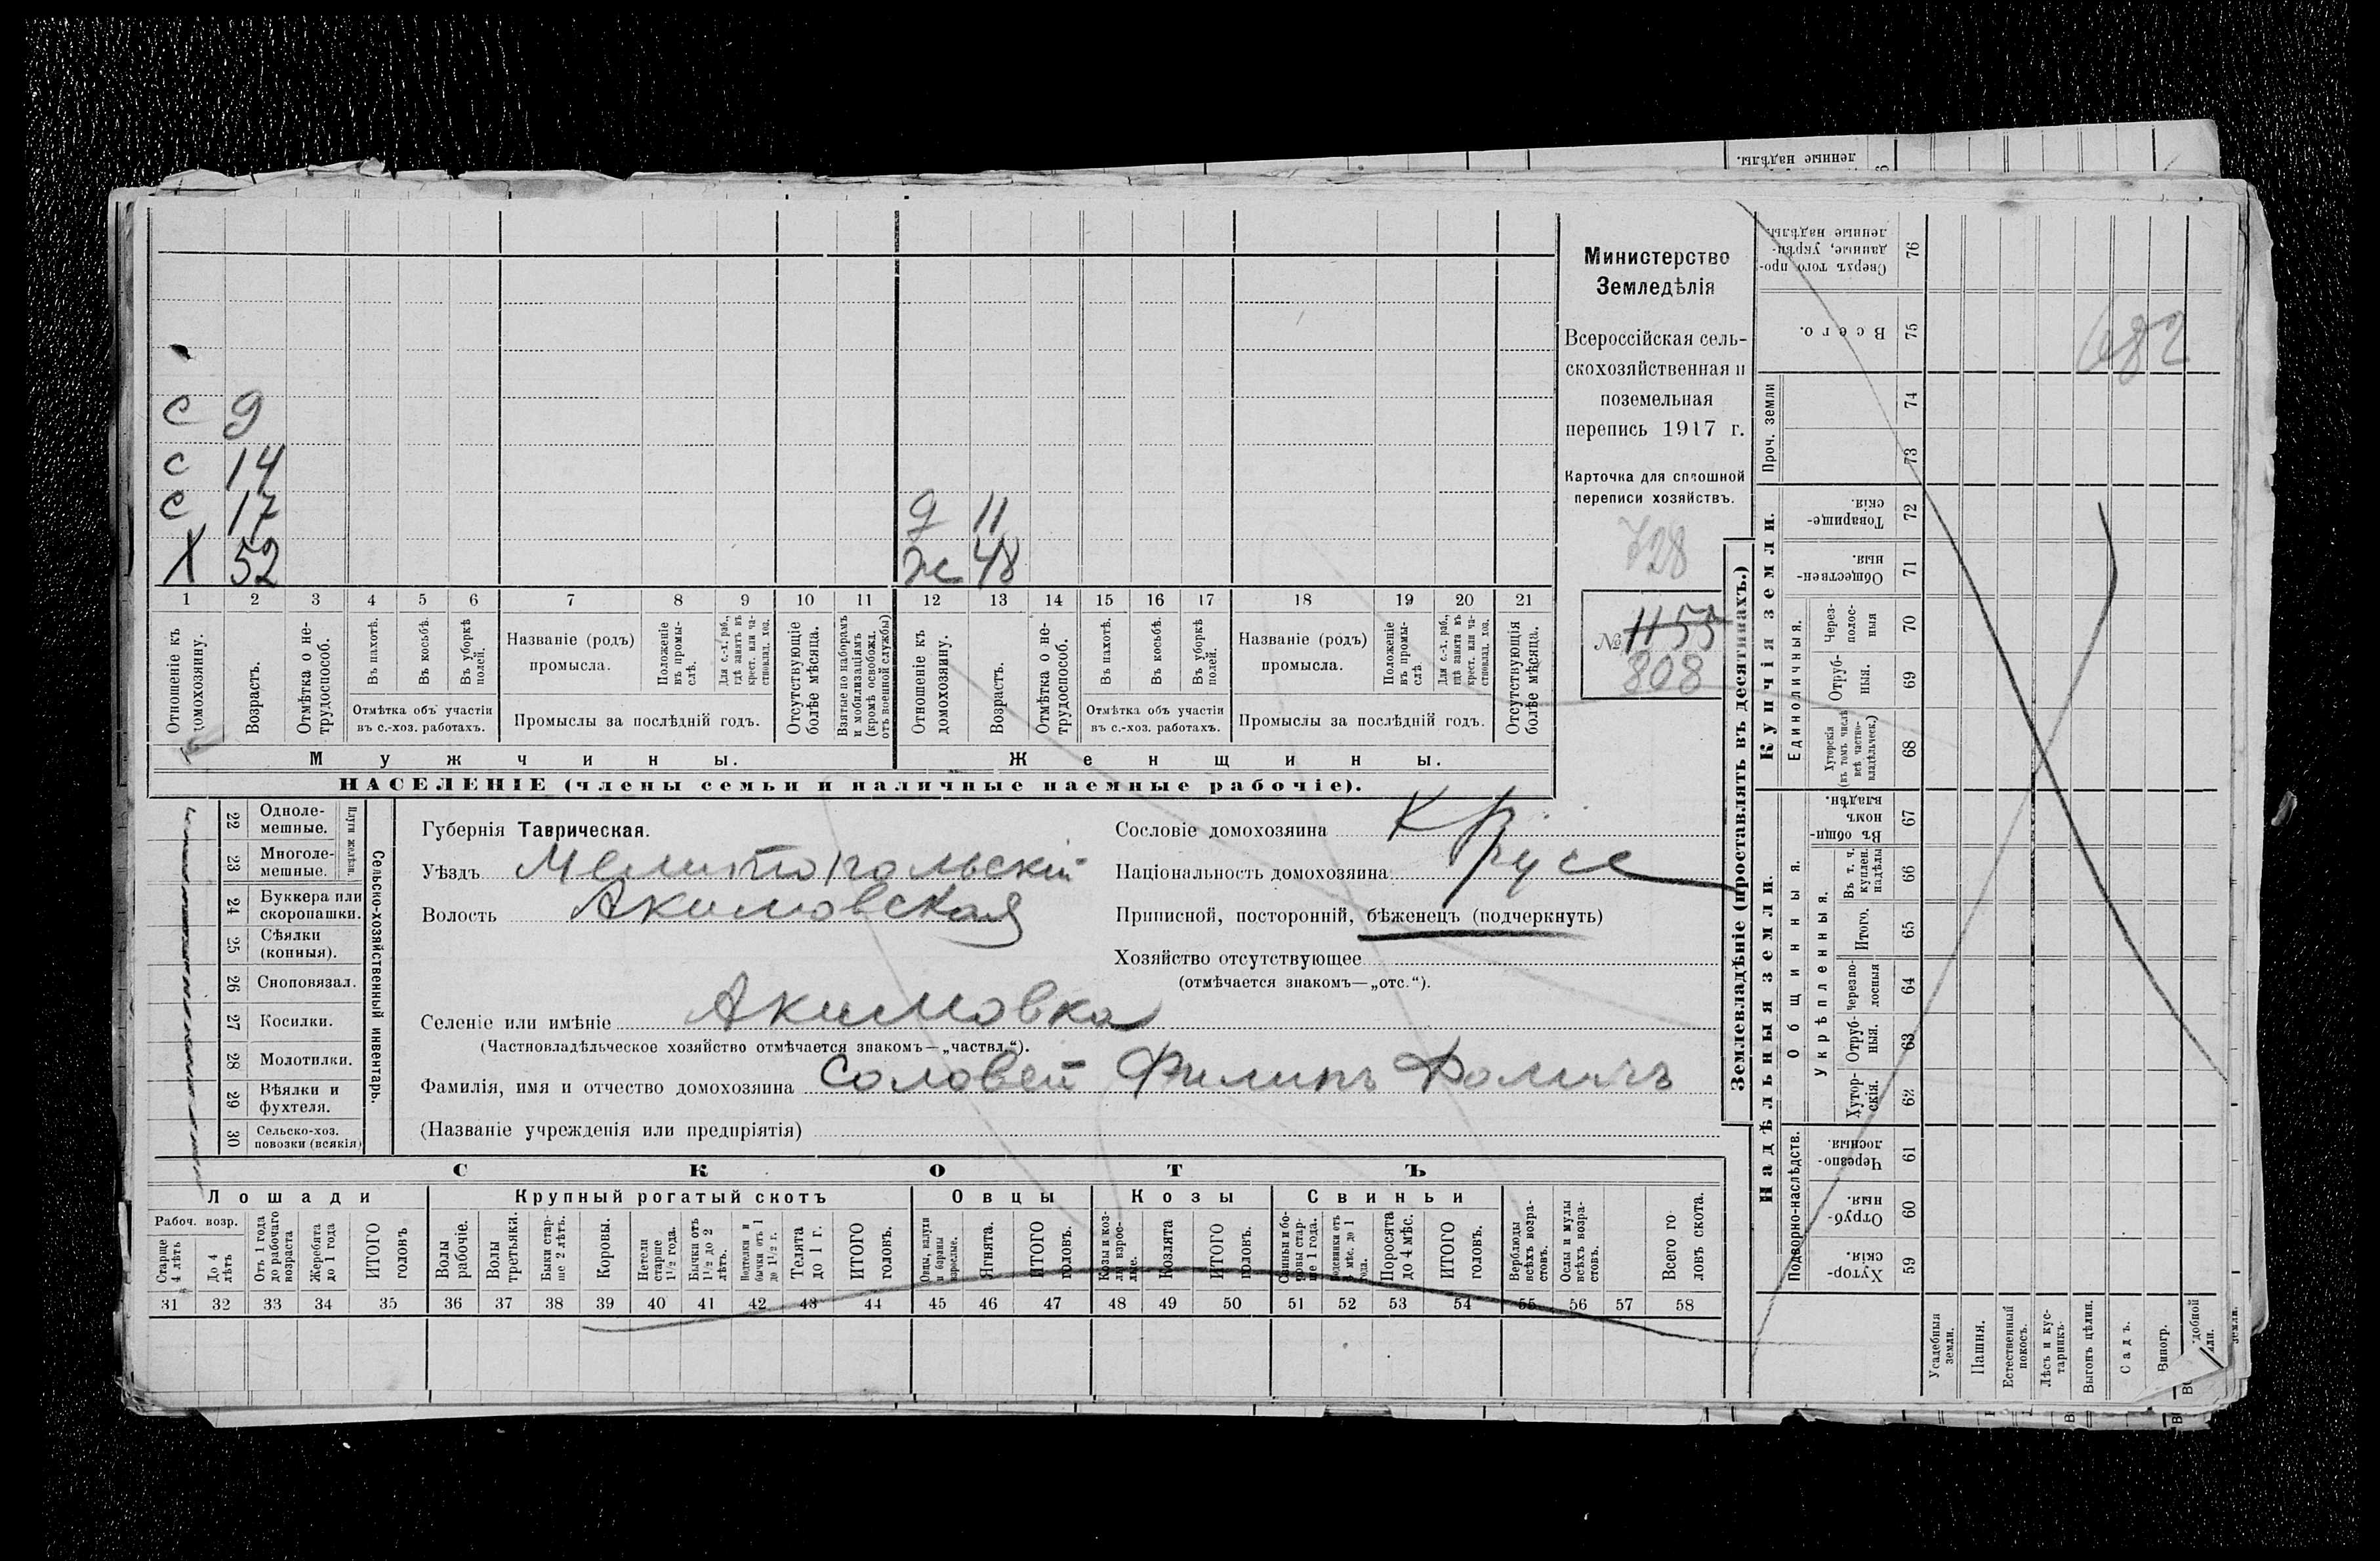 ленные надѣлы.
С 9
С 14
С 17
Х 52
д 11
ж 48
1 2 3 4 5 6 7 8 9 10 11 12 13 14 15 16 17 18 19 20 21
Отношеніе къ домохозяину.
Возрастъ.
Отмѣтка о нетрудоспособ.
Въ пахотѣ.
Въ косьбѣ.
Въ уборкѣ полей.
Отмѣтка объ участіи въ с.-хоз. работахъ.
Названіе (родъ) промысла.
Положеніе въ промыслѣ.
Для с.-х. раб., гдѣ занятъ въ крест. или частновлад. хоз.
Промыслы за послѣдній годъ.
Отсутствующіе болѣе мѣсяца.
Взятые по наборамъ и мобилизаціямъ (кромѣ освобожд. отъ военной службы)
Отношеніе къ домохозяину.
Возрастъ.
Отмѣтка о нетрудоспособ.
Въ пахотѣ.
Въ косьбѣ.
Въ уборкѣ полей.
Отмѣтка объ участіи въ с.-хоз. работахъ.
Названіе (родъ) промысла.
Положеніе въ промыслѣ.
Для с.-х. раб., гдѣ занята въ крест. или частновлад. хоз.
Промыслы за послѣдній годъ.
Отсутствующія болѣе мѣсяца.
Мужчины.
Женщины.
НАСЕЛЕНІЕ (члены семьи и наличные наемные рабочіе).
Министерство
Земледѣлія
Всероссійская сель-
скохозяйственная и
поземельная
перепись 1917 г.
Карточка для сплошной
переписи хозяйствъ.
728
№ 1155
808
22 Одноле-мешные.
23 Многоле-мешные.
Плуги желѣзн.
24 Буккера или скоропашки.
25 Сѣялки (конныя).
26 Сноповязал.
27 Косилки.
28 Молотилки.
29 Вѣялки и фухтеля.
30 Сельско-хоз. повозки (всякія)
Сельско-хозяйственный инвентарь.
Губернія Таврическая.
Уѣздъ Мелитопольскій
Волость Акимовская
Сословіе домохозяина Кр.
Національность домохозяина русс
Приписной, посторонній, бѣженецъ (подчеркнуть)
Хозяйство отсутствующее
(отмѣчается знакомъ—„отс.“).
Селеніе или имѣніе Акимовка
(Частновладѣльческое хозяйство отмѣчается знакомъ—„частвл.“).
Фамилія, имя и отчество домохозяина Соловей Филипъ
(Названіе учрежденія или предпріятія)
СКОТЪ
Лошади Крупный рогатый скотъ Овцы Козы Свиньи
Рабоч. возр.
Старше 4 лѣтъ
До 4 лѣтъ
Отъ 1 года до рабочаго возраста
Жеребята до 1 года
ИТОГО головъ
Волы рабочіе.
Волы третьяки.
Быки старше 2 лѣтъ.
Коровы.
Нетели старше 1 1/2 года.
Бычки отъ 1 1/2 до 2 лѣтъ.
Телята до 1 г.
ИТОГО головъ.
Овцы, валухи и бараны взрослые.
Ягнята.
ИТОГО головъ.
Козы и козлы взрослые.
Козлята
ИТОГО головъ.
Свиньи и боровы старше 1 года.
Подсвинки отъ 4 мѣс. до 1 года.
Поросята до 4 мѣс.
ИТОГО головъ.
Верблюды всѣхъ возрастовъ.
Ослы и мулы всѣхъ возрастовъ.
Всего головъ скота.
31 32 33 34 35 36 37 38 39 40 41 42 43 44 45 46 47 48 49 50 51 52 53 54 55 56 57 58
Землевладѣніе (проставлять въ десятинахъ.)
Надѣльныя земли.
Купчія земли.
Проч. земли
Подворно-наслѣдств.
Общинныя.
Укрѣпленныя.
Единоличныя.
76 Сверхъ того проданные, укрѣпленные надѣлы.
75 Всего.
682
74
73
72 Товарищескія.
71 Общественныя.
70 Через-полосныя
69 Отрубныя.
68 Хуторскія (въ томъ числѣ всѣ частновладѣльческ.)
67 Въ общинномъ владѣн.
66 Въ т. ч. куплен. надѣлы
65 Итого.
64 Черезпо-лосныя
63 Отруб-ныя.
62 Хутор-скія.
61 Черезпо-лосныя.
60 Отруб-ныя.
59 Хутор-скія.
Усадебныя земли.
Пашня.
Естественный покосъ.
Лѣсъ и кустарникъ.
Выгонъ цѣлин.
Садъ.
Виногр.